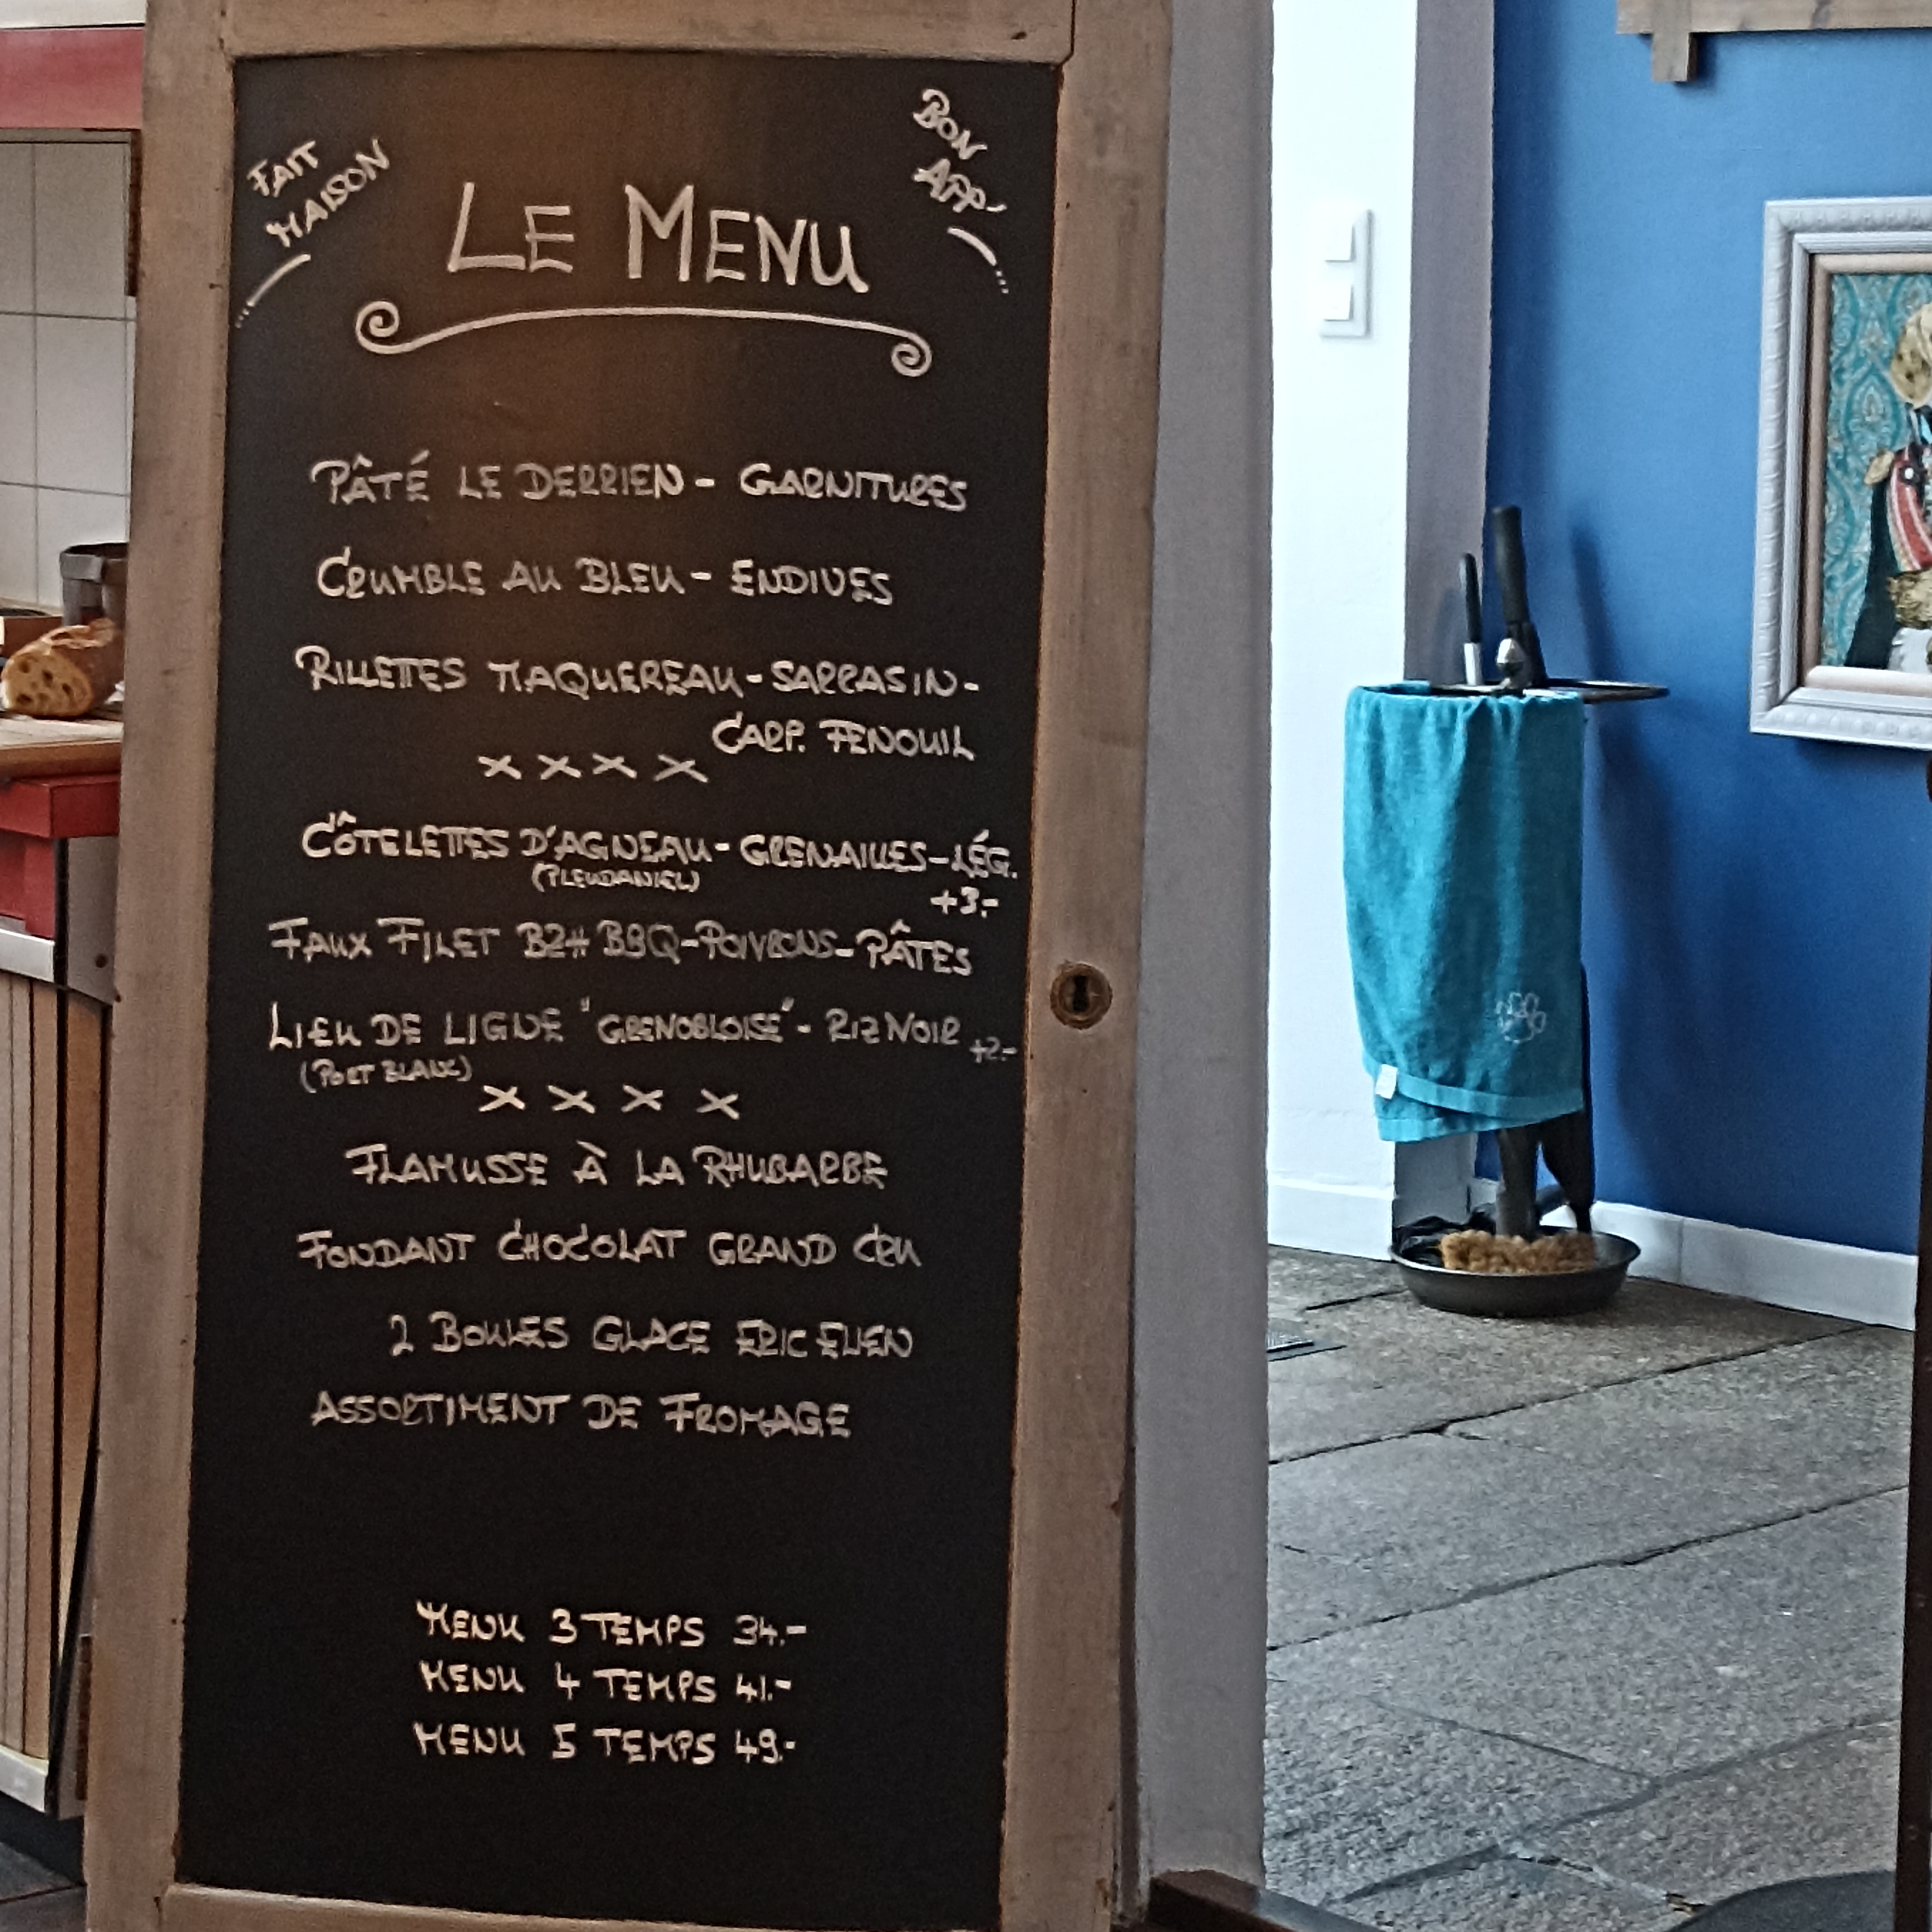 FAIT
MAISON
BON
APP'
LE MENU
PÂTÉ LE DERRIEN - GARNITURES
CRUMBLE AU BLEU - ENDIVES
RILLETTES MAQUEREAU - SARRASIN -
CARP. FENOUIL
x x x x
CÔTELETTES D'AGNEAU - GRENAILLES - LÉG.
(PLEUDANIEL)
+3.-
FAUX FILET BZH BBQ - POIVRONS - PÂTES
LIEU DE LIGNE "GRENOBLOISE" - RIZ NOIR +2.-
(PORT BLANC)
x x x x
FLAMUSSE À LA RHUBARBE
FONDANT CHOCOLAT GRAND CRU
2 BOULES GLACE ERIC ELIEN
ASSORTIMENT DE FROMAGE
MENU 3 TEMPS 34.-
MENU 4 TEMPS 41.-
MENU 5 TEMPS 49.-